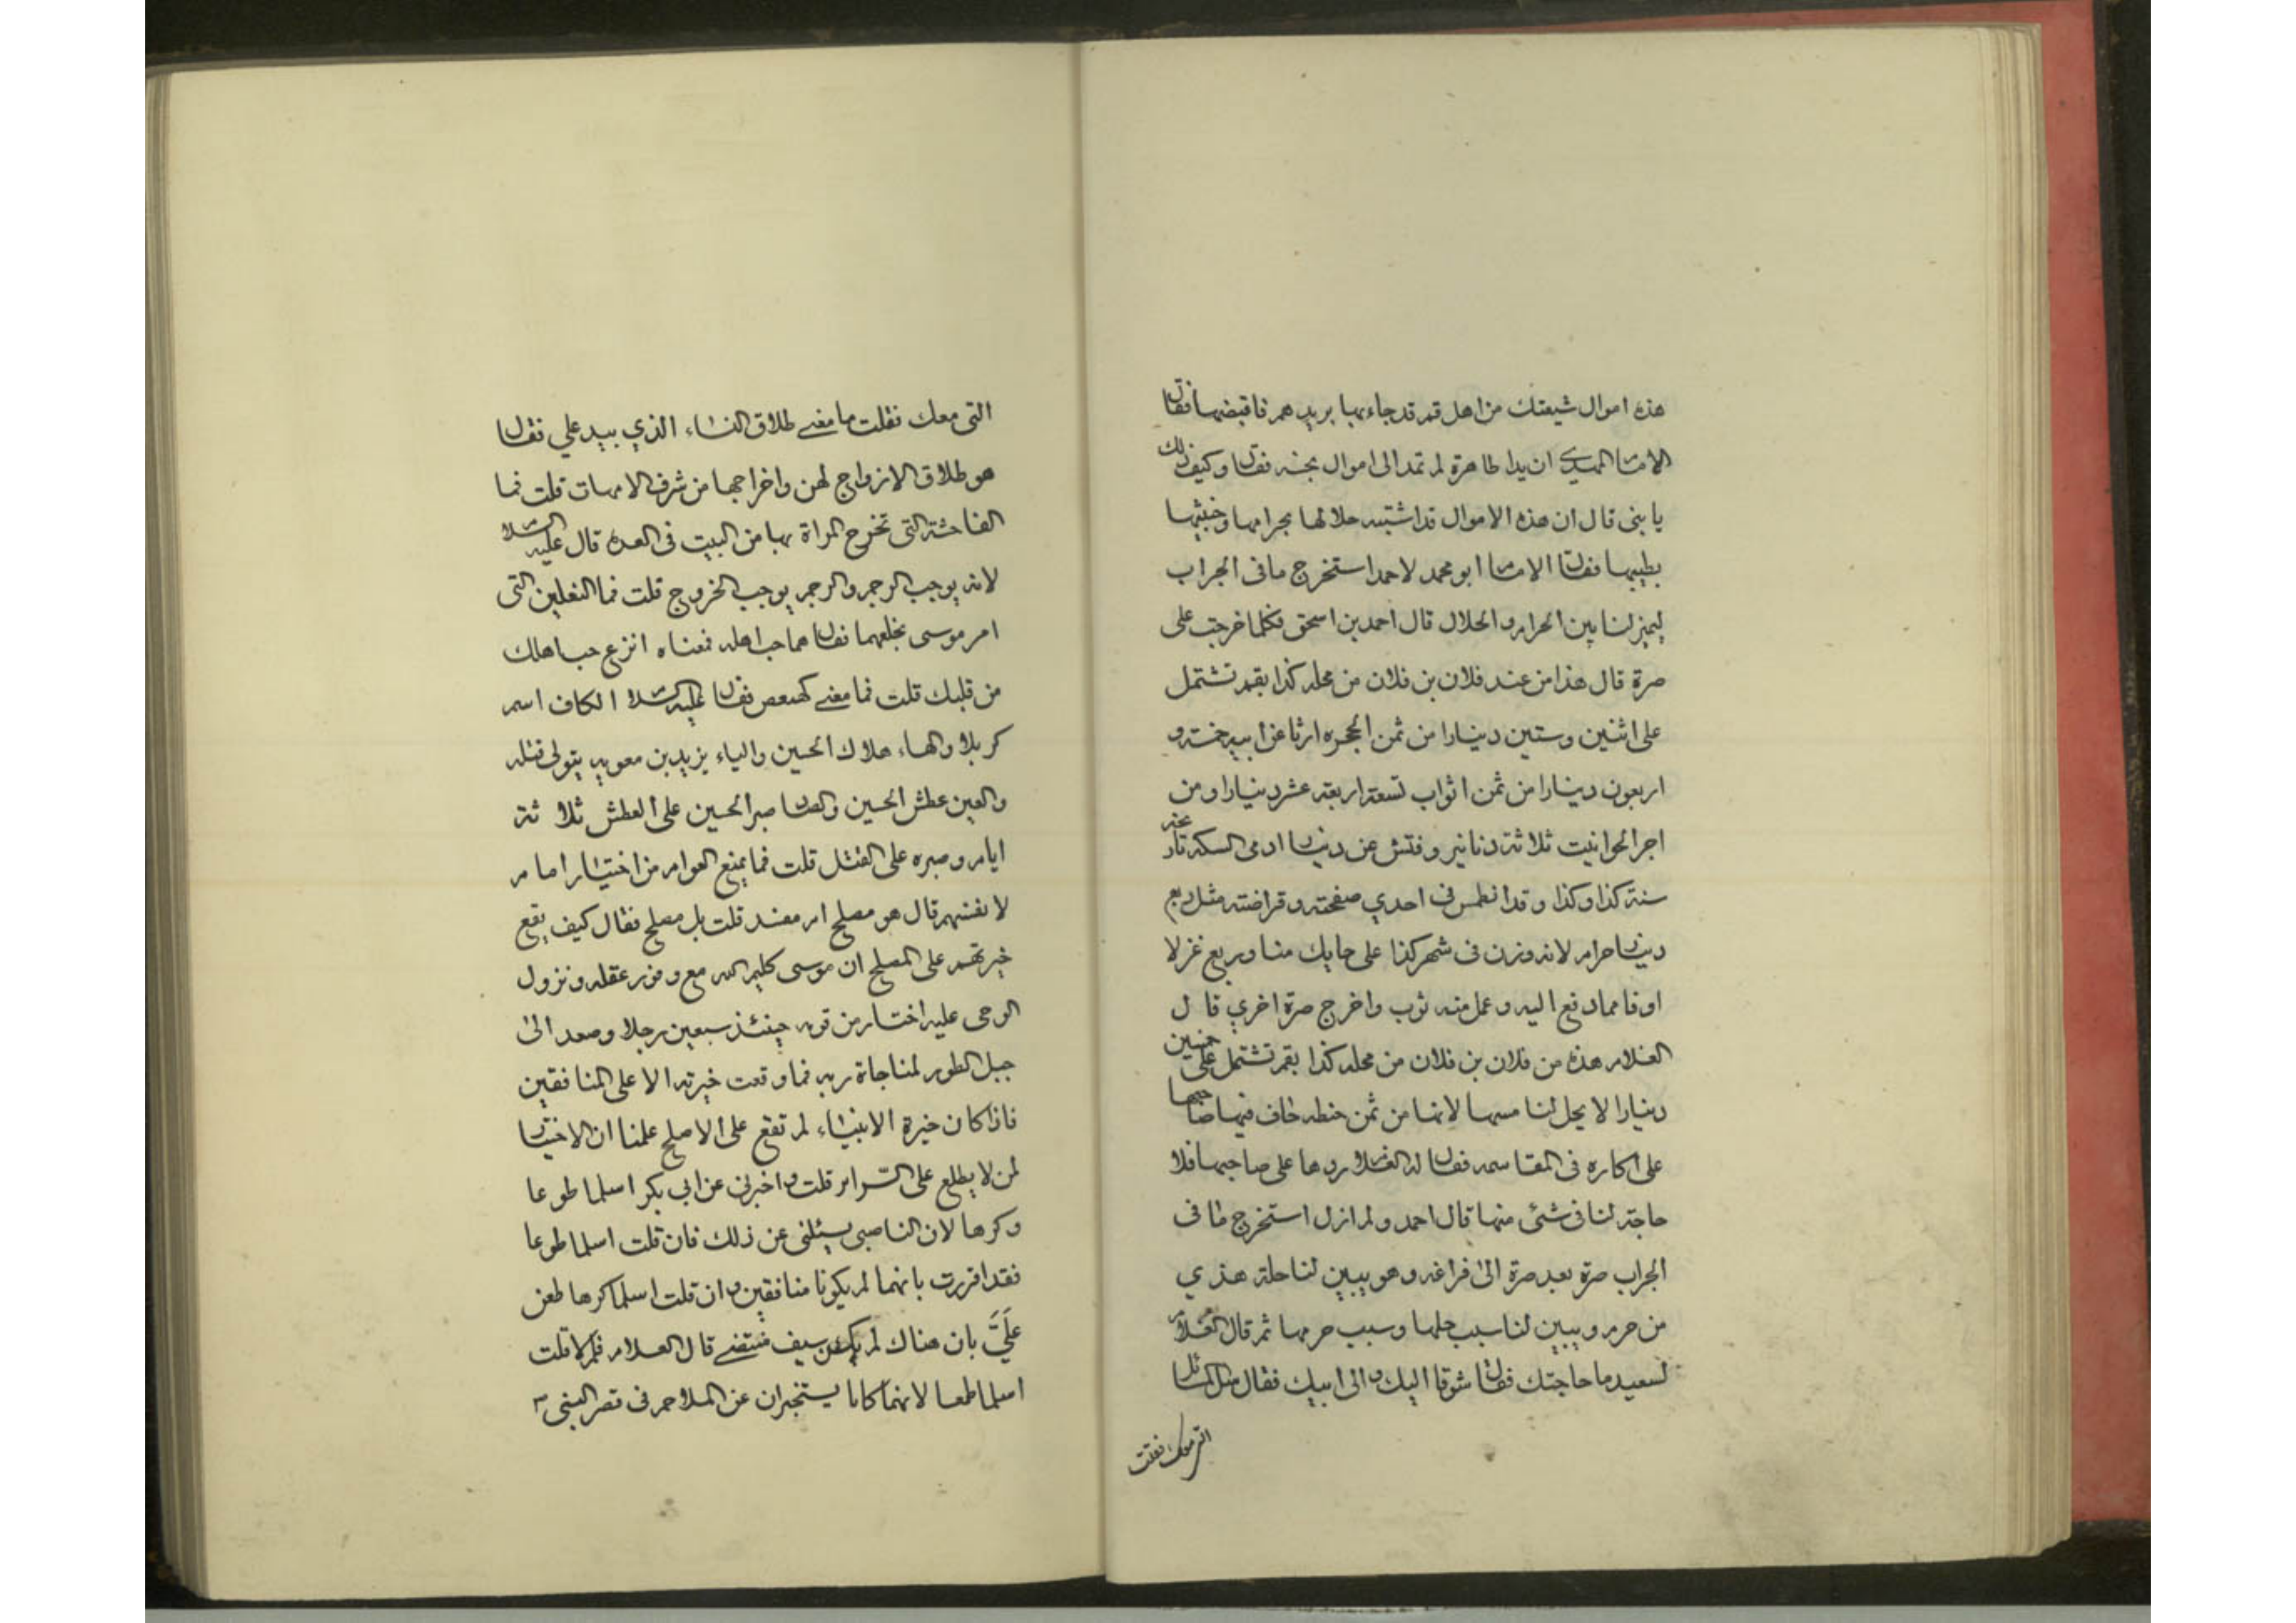 هذه اموال شيعتك من اهل قم قد جاء بها يريدهم فاقبضها فقال
الامام المهدي ان يدا طاهرة لم تمد الى اموال نجسه فقال وكيف ذلك
يا بنى قال ان هذه الاموال قد اشتبه حلالها بحرامها وخبثها
بطيبها فقال الامام ابو محمد لاحمد استخرج ما فى الجراب
ليميز لنا بين الحرام والحلال قال احمد بن اسحق فكلما خرجت على
صرة قال هذا من عند فلان بن فلان من محله كذا بقم تشتمل
على اثنين وستين دينارا من ثمن الحجره ارثا عن ابيه خمسة و
اربعون دينارا من ثمن اثواب تسعة اربعة عشر دينارا ومن
اجر الحوانيت ثلاثة دنانير وفتش عن دينار ادمى السكه تاريخه
سنة كذا وكذا وقد انطمس فى احدي صفحته وقراضته مثل ربع
دينار حرام لانه وزن فى شهر كذا على حايك منا وربع غزلا
اوقا مما دفع اليه وعمل منه ثوب واخرج صرة اخري قال
الغلام هذه من فلان بن فلان من محله كذا بقم تشتمل على خمسين
دينارا لا يحل لنا مسها لانها من ثمن حنطه خاف فيها صاحبها
على اكاره فى المقاسمه فقال له الغلام ردها على صاحبها فلا
حاجة لنا فى شئى منها قال احمد ولم ازل استخرج ما فى
الجراب صرة بعد صرة الى فراغه وهو يبين لنا حلة هذي
من حرمه ويبين لنا سبب حلها وسبب حرمها ثم قال الغلام
لسعيد ما حاجتك فقال شوقا اليك والى ابيك فقال سل المسائل
التى معك فقلت
التى معك فقلت ما معنى طلاق النساء الذي بيد على فقال
هو طلاق الازواج لهن واخراجها من شرف الامهات قلت فما
الفاحشة التى تخرج المراة بها من البيت فى العده قال عليه السلام
لانه يوجب الرجم والرجم يوجب الخروج قلت فما النعلين التى
امر موسى بخلعهما فقال هما حب اهله فمعناه انزع حب اهلك
من قلبك قلت فما معنى كهيعص فقال عليه السلام الكاف اسم
كربلا والهاء هلاك الحسين والياء يزيد بن معويه يتولى قتله
والعين عطش الحسين والصاد صبر الحسين على العطش ثلا ثة
ايام وصبره على القتل قلت فما يمنع العوام من اختيار امام
لانفسهم قال هو مصلح ام مفسد قلت بل مصلح فقال كيف يقع
خيرتهم على المصلح ان موسى كليم الله مع وفور عقله ونزول
الوحى عليه اختار من قومه حينئذ سبعين رجلا وصعد الى
جبل الطور لمناجاة ربه فما وقعت خيرته الا على المنافقين
فاذا كان خيرة الانبياء لم تقع على الاصلح علمنا ان الاختيار
لمن لا يطلع على السراير قلت واخبرنى عن ابى بكر اسلما طوعا
وكرها لان الناصبى يسئلنى عن ذلك فان قلت اسلما طوعا
فقد اقررت بانهما لم يكونا منافقين وان قلت اسلما كرها طعن
عَلَيَّ بان هناك لم يكن سيف منتضى قال الغلام فلم لا قلت
اسلما طمعا لانهما كانا يستخبران عن الملاحم فى قصر النبى ص